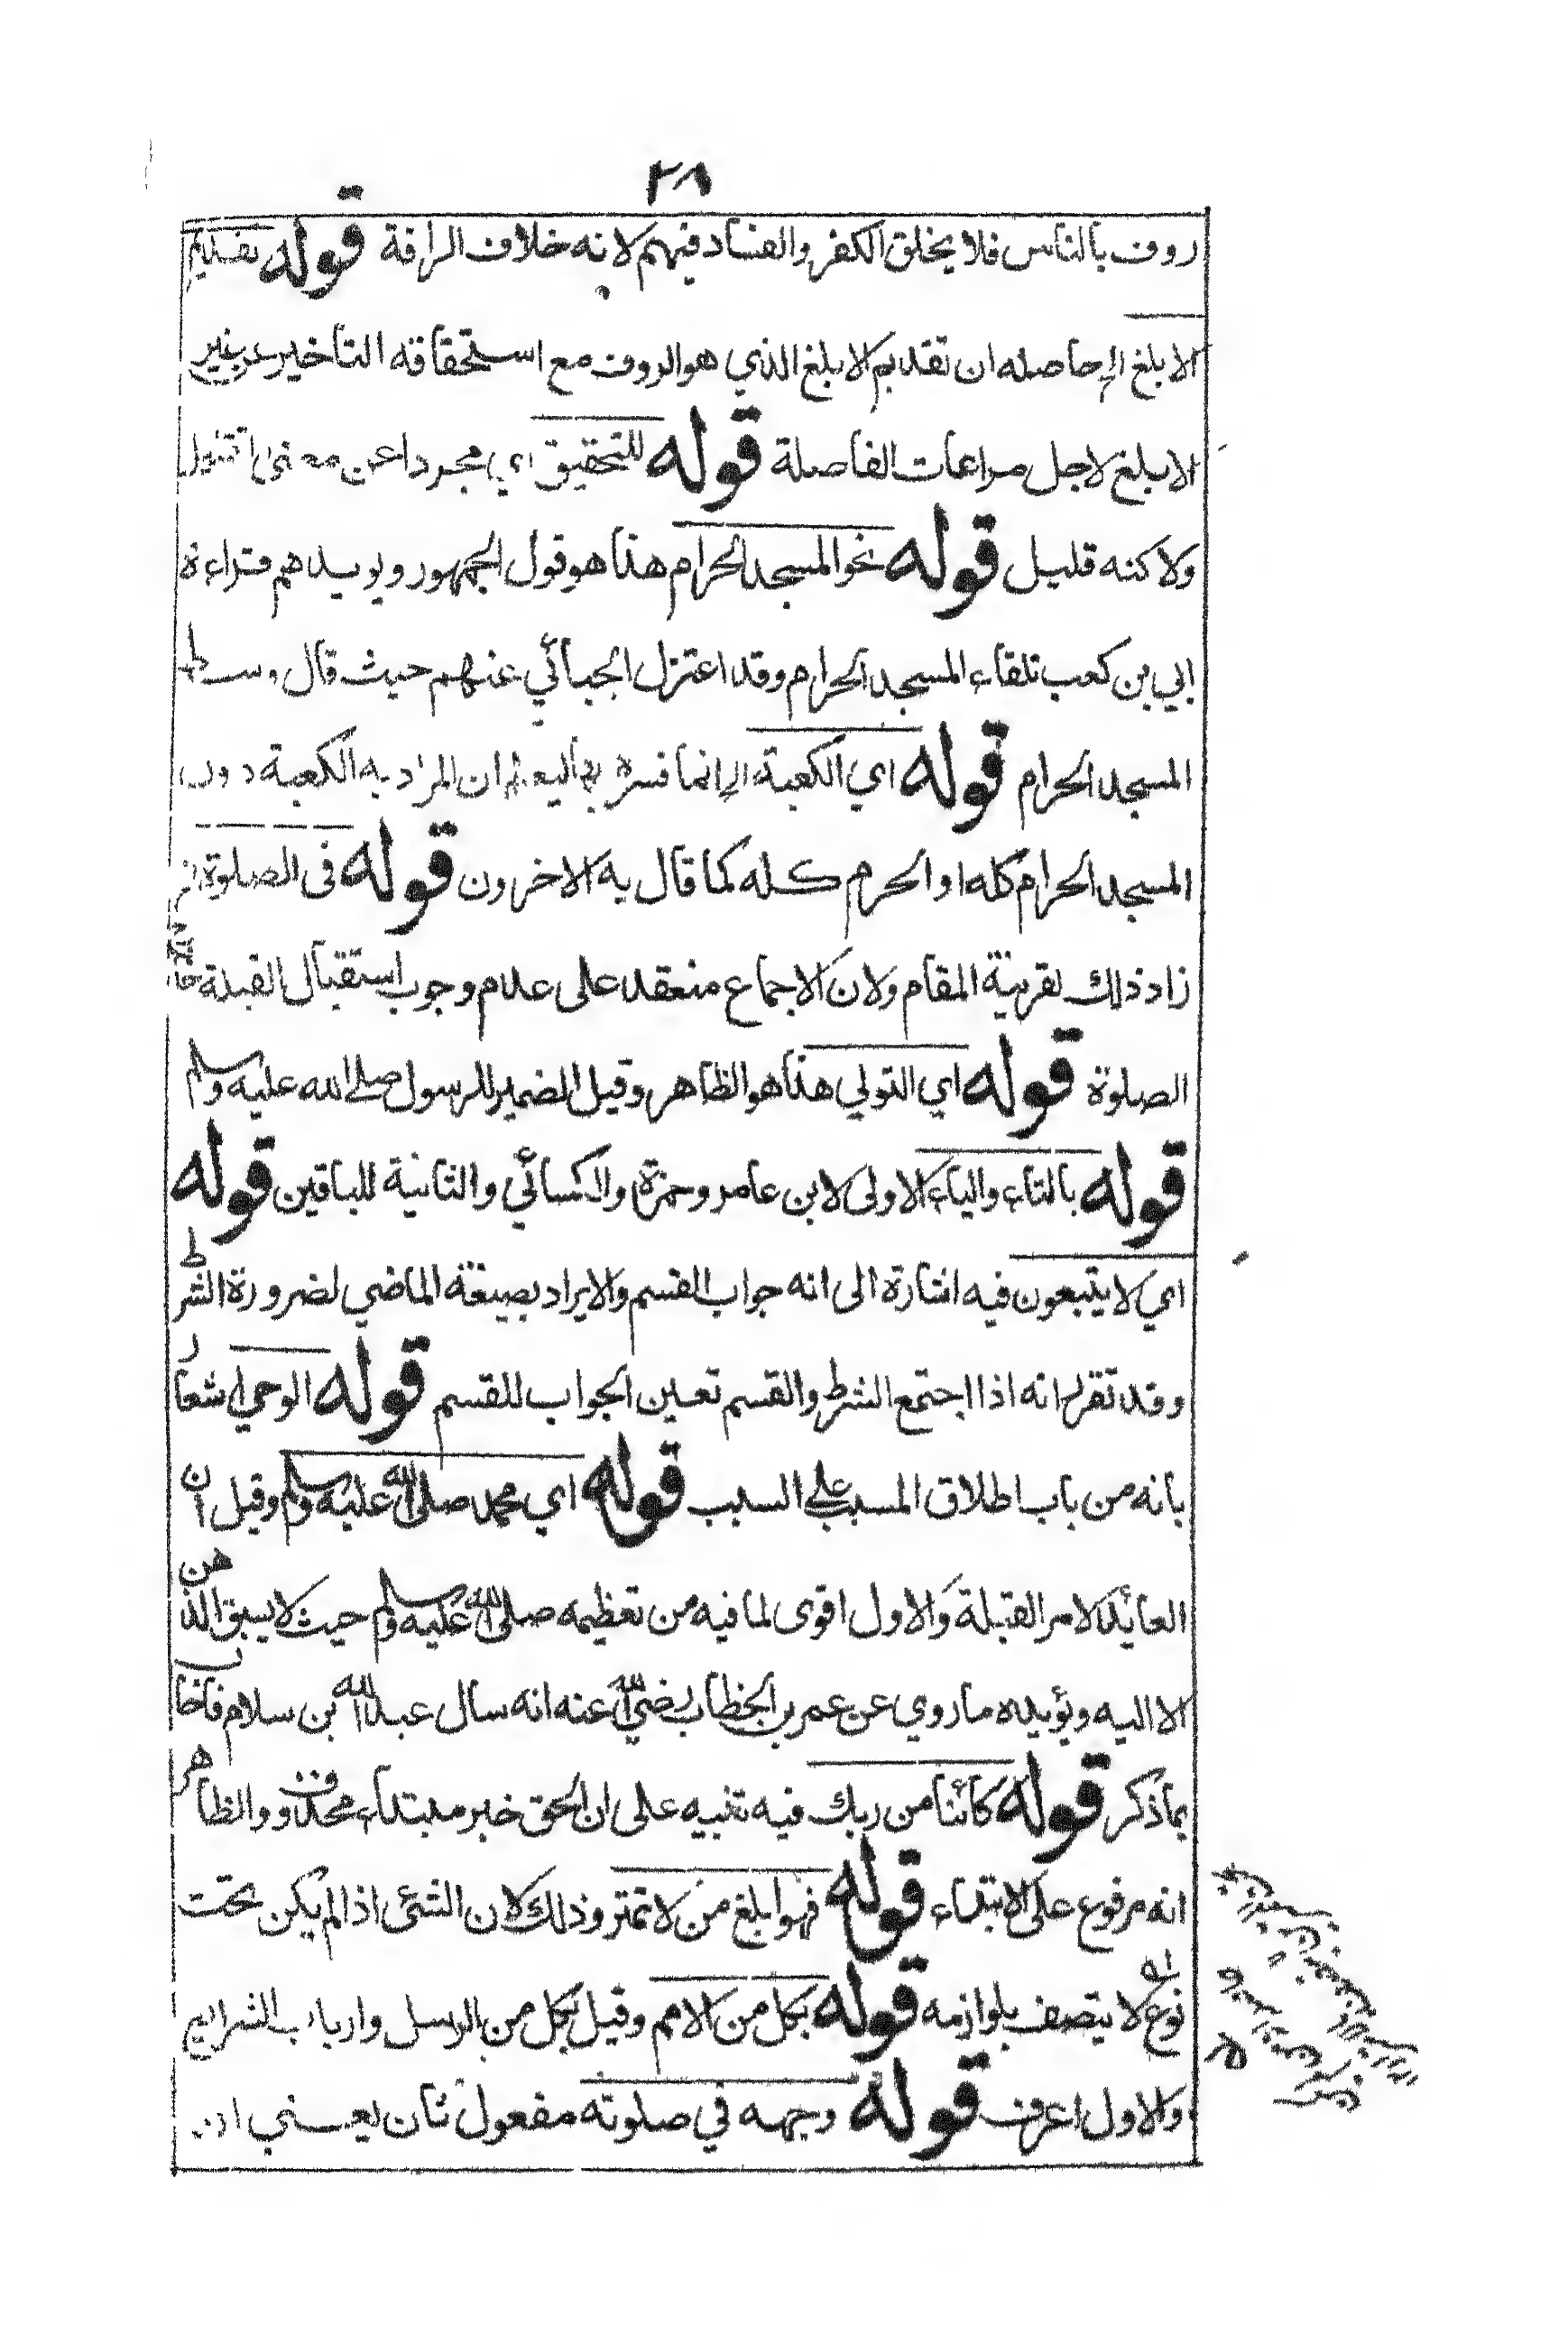 ٢٨
روف بالناس فلا يخلق الكفر والفساد فيهم لانه خلاف الرافة قوله تقديم
الابلغ الخ حاصله ان تقديم الابلغ الذي هو الروف مع استحقاقه التاخير عن غير
الابلغ لاجل مراعات الفاصلة قوله للتحقيق اي مجردا عن معنى
ولاكنه قليل قوله نحو المسجد الحرام هذا هو قول الجمهور ويويدهم قراءة
ابي بن كعب تلقاء المسجد الحرام وقد اعتزل الجبائي عنهم حيث قال وسط
المسجد الحرام قوله اي الكعبة الخ انما فسره بها ليعلم ان المراد به الكعبة دون
المسجد الحرام كله او الحرم كله كما قال به الاخرون قوله فى الصلوة
زاد ذلك لقرينة المقام ولان الاجماع منعقد على عدم وجوب استقبال القبلة
الصلوة قوله اي التولي هذا هو الظاهر وقيل الضمير للرسول صلى الله عليه وسلم
قوله بالتاء والياء الاولى لابن عامر وحمزة والكسائي والثانية للباقين قوله
اي لا يتبعون فيه اشارة الى انه جواب القسم والايراد بصيغة الماضي لضرورة الشرط
وقد تقرر انه اذا اجتمع الشرط والقسم تعين الجواب للقسم قوله الوحي اشعار
بانه من باب اطلاق المسبب على السبب قوله اي محمد صلى الله عليه وسلم وقيل ان
العائد لامر القبلة والاول اقوى لما فيه من تعظيمه صلى الله عليه وسلم حيث لا يسبق الذهن
الا اليه ويؤيده ما روي عن عمر بن الخطاب رضي الله عنه انه سال عبد الله بن سلام فاخاب
بما ذكر قوله كائنا من ربك فيه تنبيه على ان الحق خبر مبتداء محذوف والظاهر
انه مرفوع على الابتداء قوله فهو ابلغ من لا تمتر وذلك لان الشئ اذا لم يكن تحت
نوع لا يتصف بلوازمه قوله لكل من الامم وقيل لكل من الرسل وارباب الشرايع
والاول اعرف قوله وجهه في صلوته مفعول ثان يعني